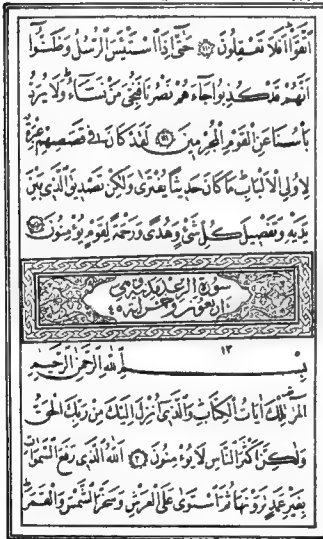 اتَّقَوْاۜ اَفَلَا تَعْقِلُونَ ﴿١٠٩﴾ حَتّٰٓى اِذَا اسْتَيْـَٔسَ الرُّسُلُ وَظَنُّٓوا
اَنَّهُمْ قَدْ كُذِبُوا جَٓاءَهُمْ نَصْرُنَا فَنُجِّىَ مَنْ نَشَٓاءُ وَلَا يُرَدُّ
بَأْسُنَا عَنِ الْقَوْمِ الْمُجْرِمٖينَ ﴿١١٠﴾ لَقَدْ كَانَ فٖى قَصَصِهِمْ عِبْرَةٌ
لِاُولِى الْاَلْبَابِ مَا كَانَ حَدٖيثًا يُفْتَرٰى وَلٰكِنْ تَصْدٖيقَ الَّذٖى بَيْنَ
يَدَيْهِ وَتَفْصٖيلَ كُلِّ شَىْءٍ وَهُدًى وَرَحْمَةً لِقَوْمٍ يُؤْمِنُونَ ﴿١١١﴾
سورة الرعد
١٣
بِسْمِ اللّٰهِ الرَّحْمٰنِ الرَّحٖيمِ
الٓمٓرٰ تِلْكَ اٰيَاتُ الْكِتَابِ وَالَّذٖٓى اُنْزِلَ اِلَيْكَ مِنْ رَبِّكَ الْحَقُّ
وَلٰكِنَّ اَكْثَرَ النَّاسِ لَا يُؤْمِنُونَ ﴿١﴾ اَللّٰهُ الَّذٖى رَفَعَ السَّمٰوَاتِ
بِغَيْرِ عَمَدٍ تَرَوْنَهَا ثُمَّ اسْتَوٰى عَلَى الْعَرْشِ وَسَخَّرَ الشَّمْسَ وَالْقَمَرَ